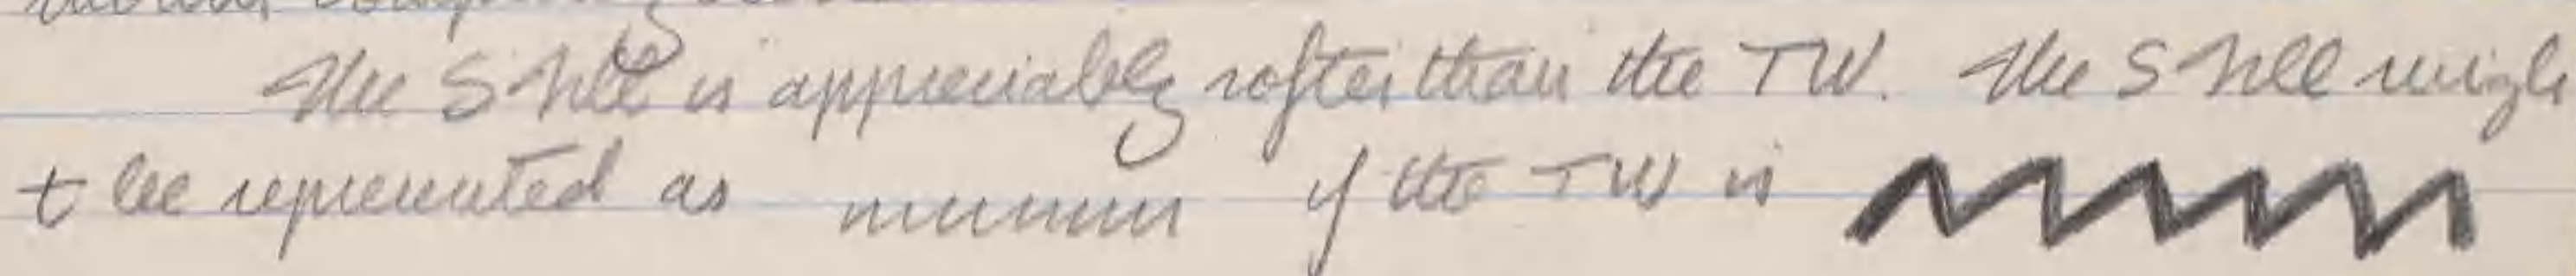 The S trill is appreciably softer than the TW. The S trill migh
t be represented as if the TW is